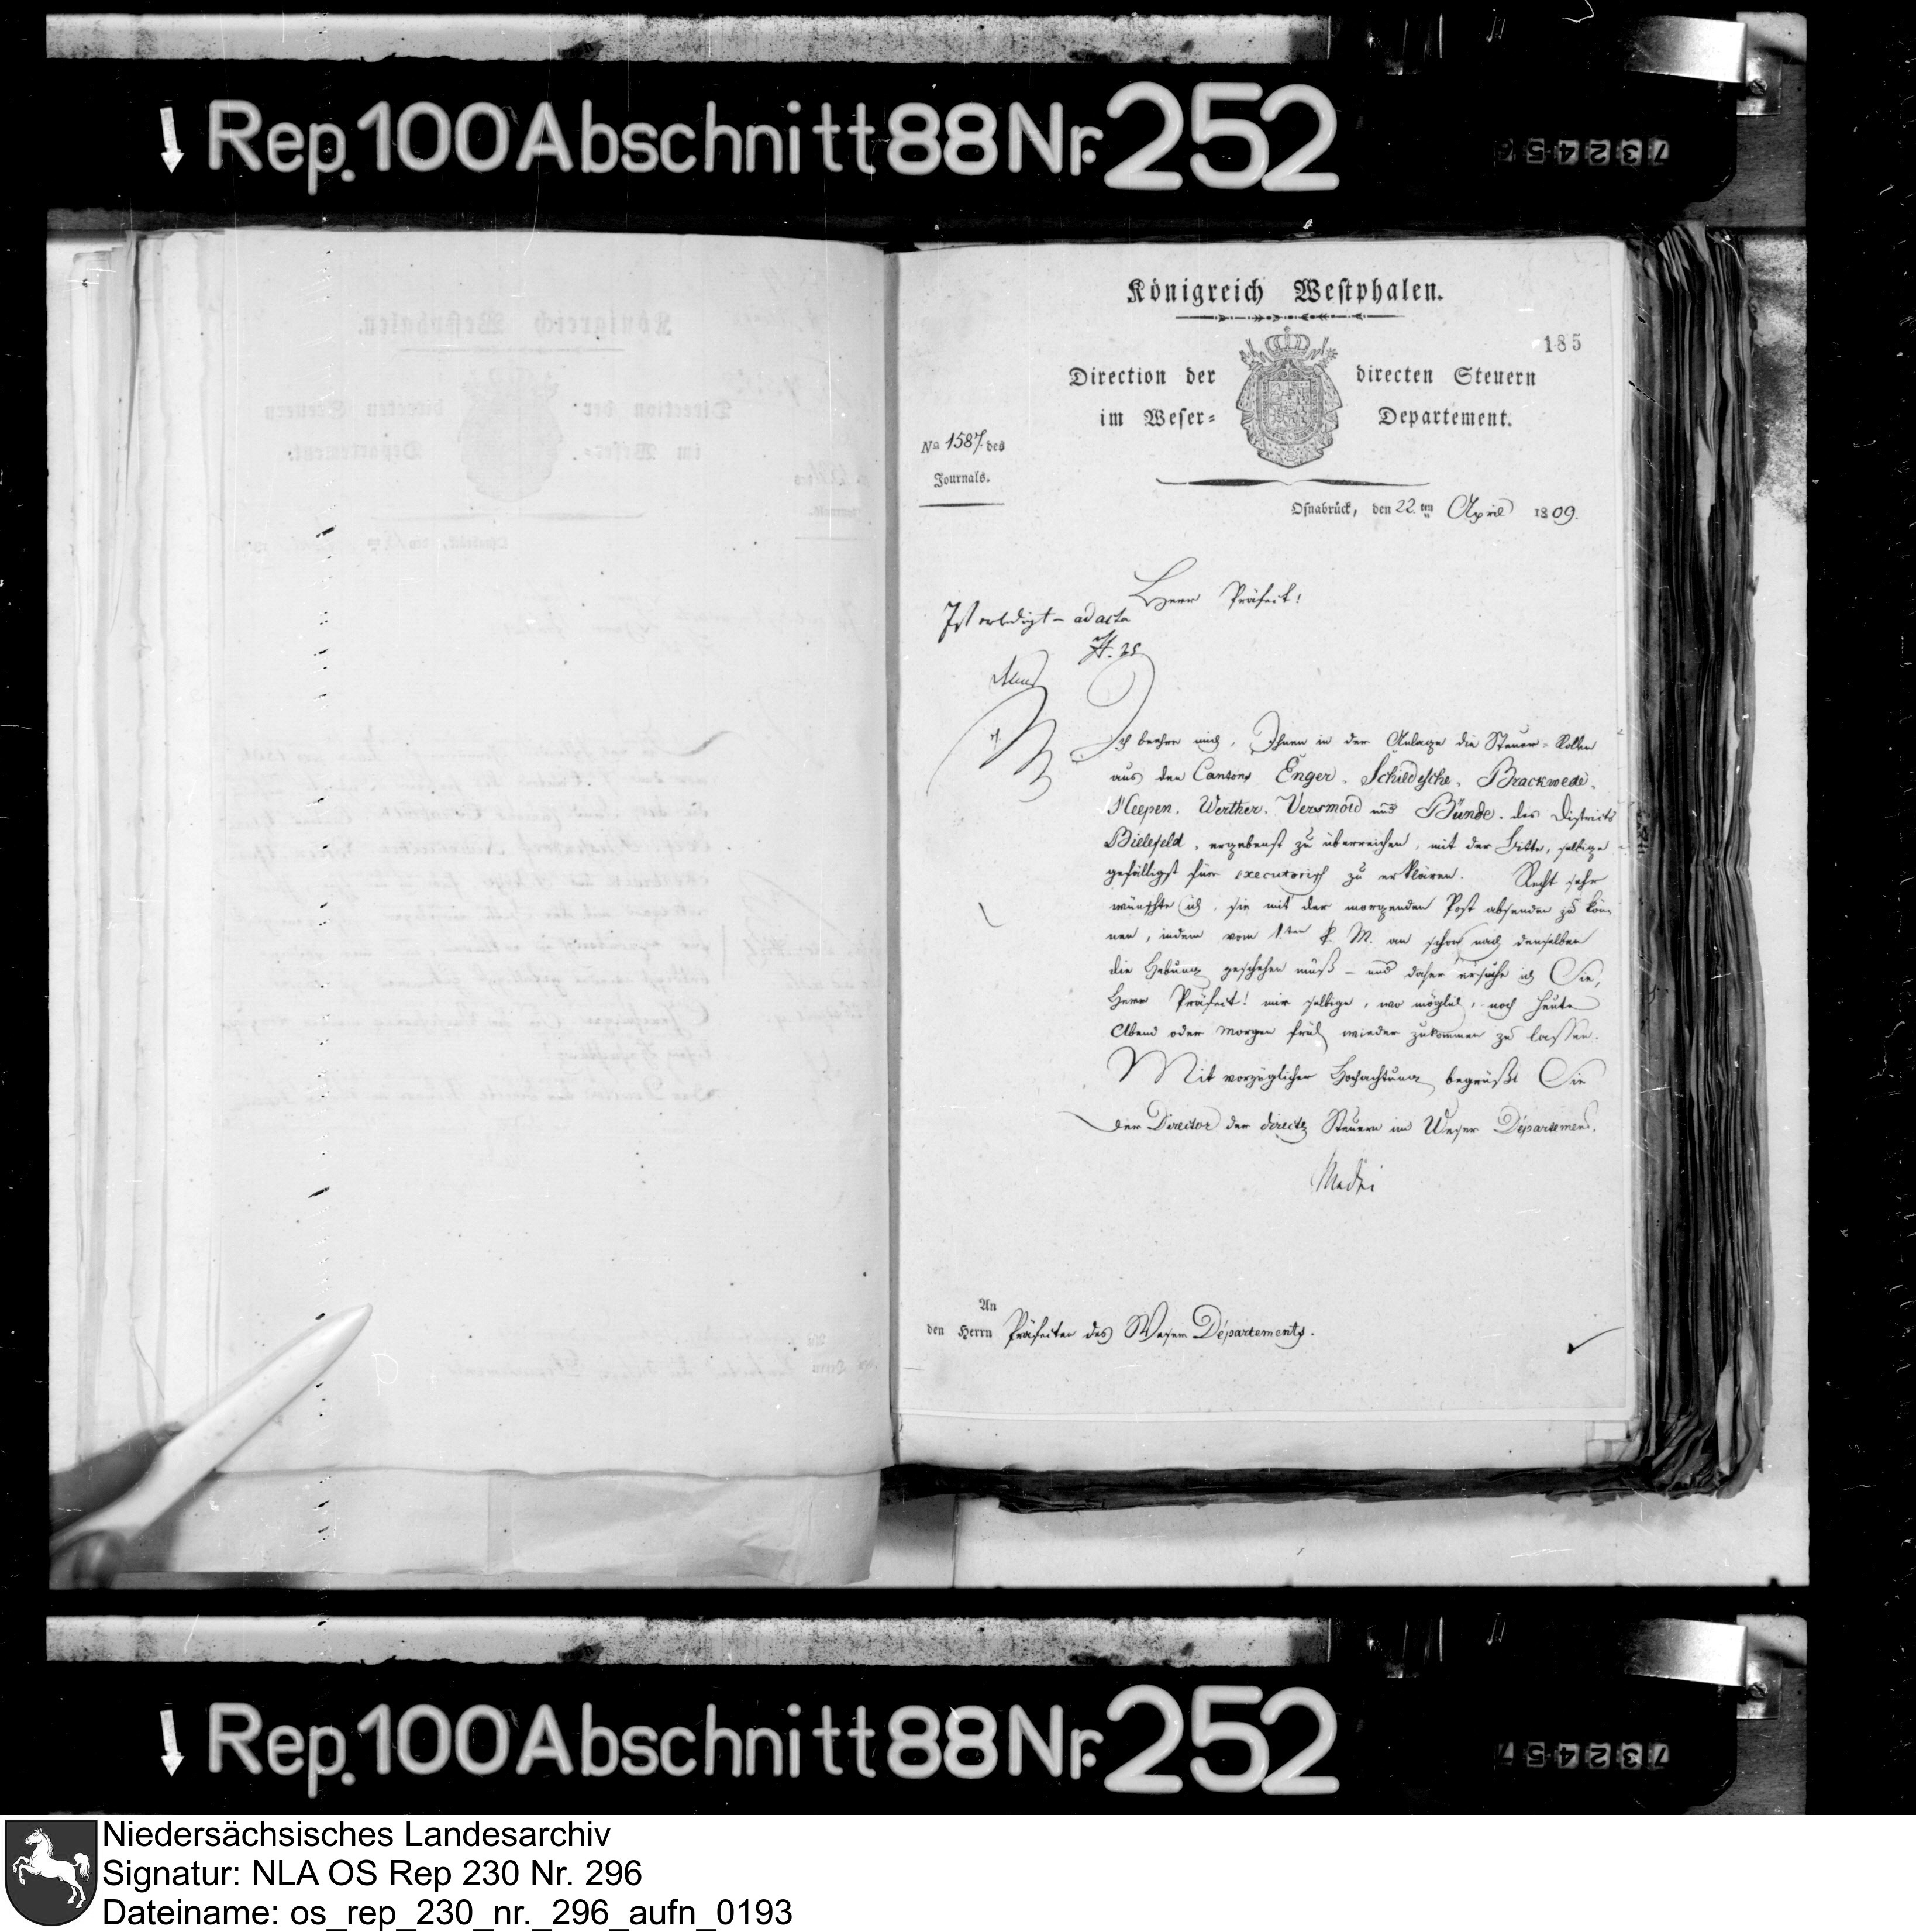 Rep. 100 Abschnitt 88 Nr. 252
Königreich Westphalen.
185
Direction der directen Steuern
im Weser- Departement.
No 1587. des
Journals.
Osnabrück, den 22ten April 1809.
Herr Präfect!
Ist erledigt – ad acta
Ich beehre mich, Ihnen in der Anlage die Steuer-Rollen
aus den Cantons Enger, Schildesche, Brackwede,
Heepen, Werther, Versmold und Bünde, des Districts
Bielefeld, ergebenst zu überreichen, mit der Bitte, selbige
gefälligst für executorisch zu erklären. Recht sehr
wünschte ich, sie mit der morgenden Post absenden zu kön
nen, indem vom 1ten k. M. an schon nach denselben
die Hebung geschehen muß – und daher ersuche ich Sie,
Herr Präfect! mir selbige, wo möglich, noch heute
Abend oder morgen früh wieder zukommen zu lassen.
Mit vorzüglicher Hochachtung begrüßt Sie
der Director der directen Steuern im Weser Département.
An
den Herrn Präfecten des Weser Départements.
Rep. 100 Abschnitt 88 Nr. 252
Niedersächsisches Landesarchiv
Signatur: NLA OS Rep 230 Nr. 296
Dateiname: os_rep_230_nr._296_aufn_0193